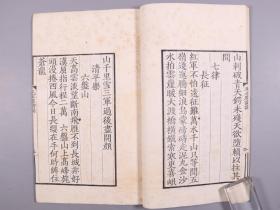 山刺破青天鍔未殘天欲墮賴以拄其
間
七律
長征
紅軍不怕遠征難萬水千山只等閒五
嶺逶迤騰細浪烏蒙磅礴走泥丸金沙
水拍雲崖暖大渡橋橫鐵索寒更喜岷
山千里雪三軍過後盡開顏
清平樂
六盤山
天高雲淡望斷南飛雁不到長城非好
漢屈指行程二萬 六盤山上高峰旄
頭漫捲西風今日長纓在手何時縛住
蒼龍